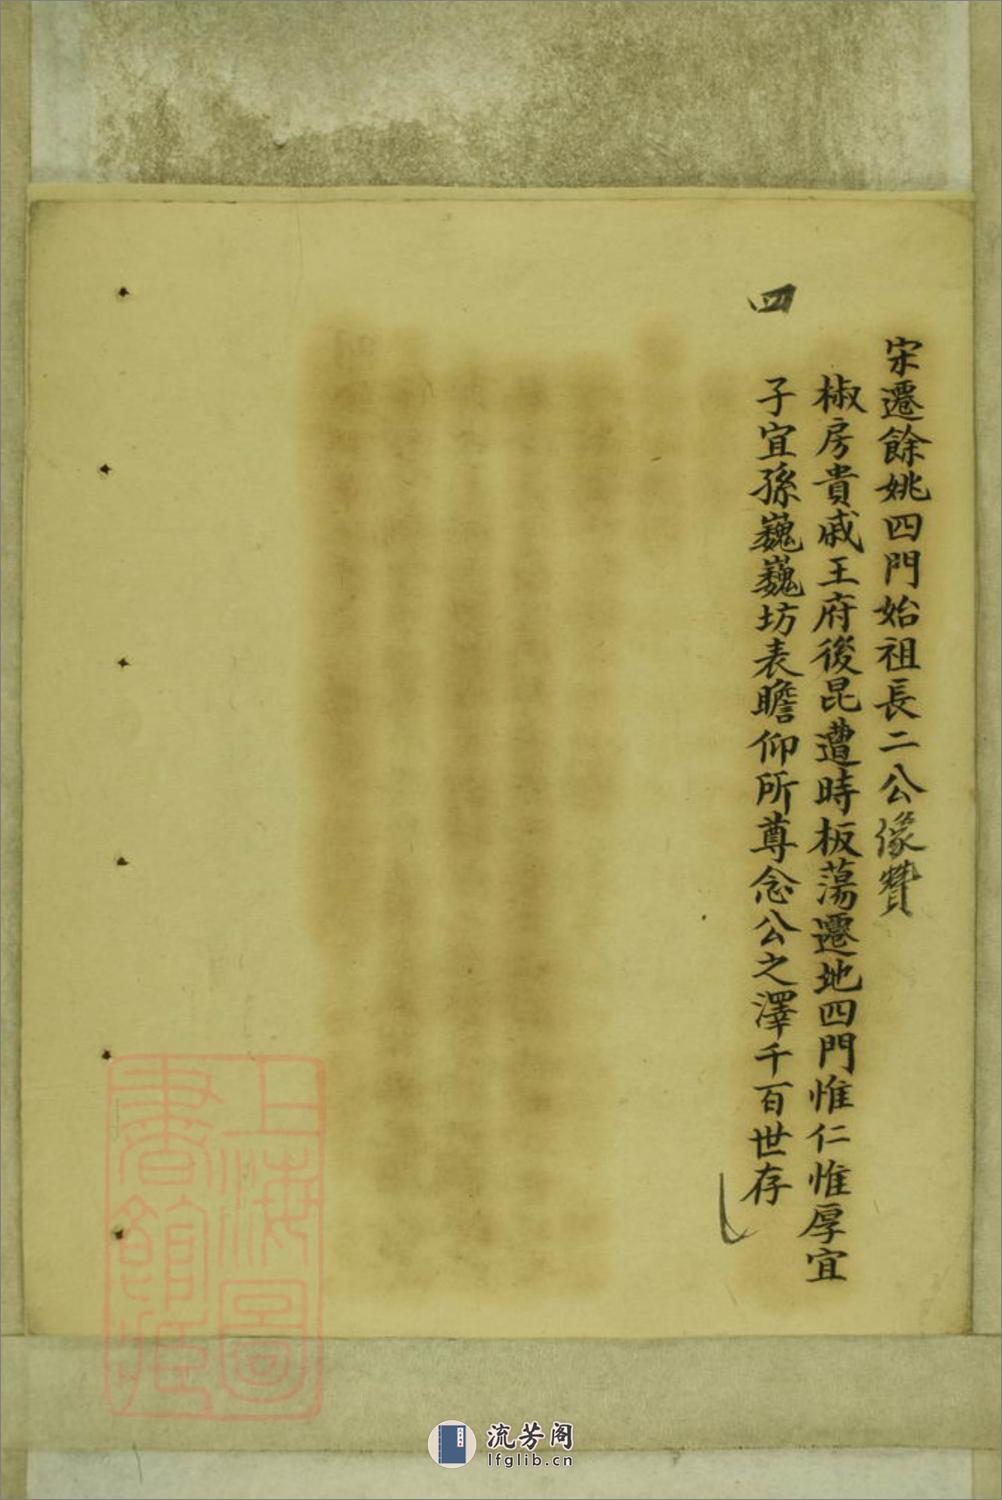 宋遷餘姚四門始祖長二公像贊
椒房貴戚王府後昆遭時板蕩遷地四門惟仁惟厚宜
四
子宜孫巍巍坊表瞻仰所尊念公之澤千百世存
上海圖
書館藏
流芳阁
lfglib.cn